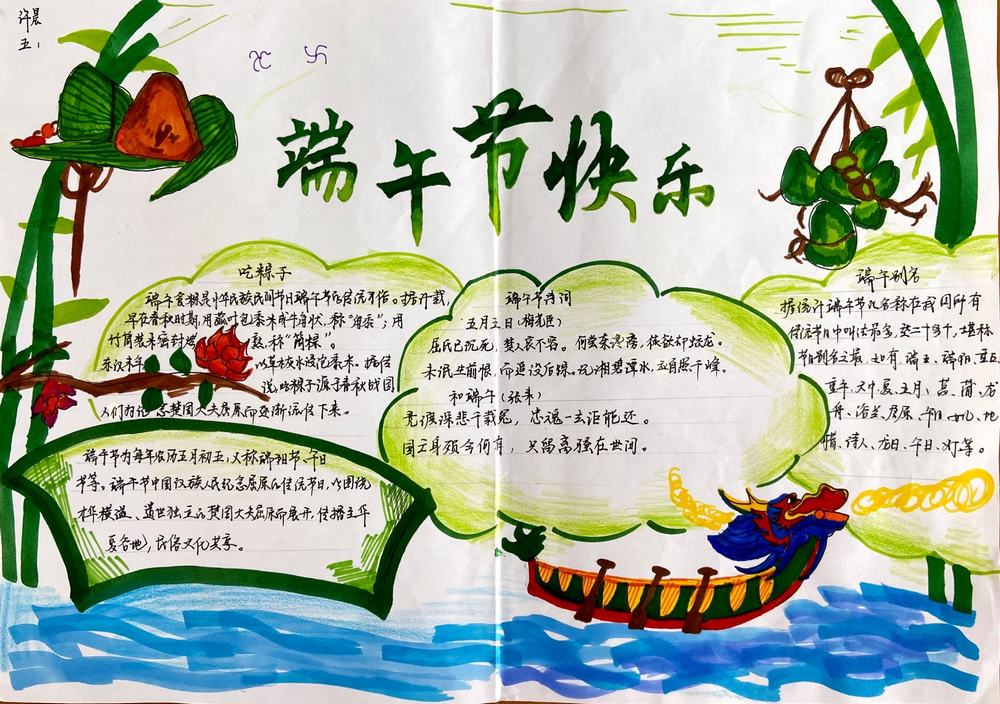 许晨
五1
端午节快乐
吃粽子
端午食粽是中华民族民间节日端午节的传统习俗。据记载,
早在春秋时期,用菰叶包黍米成牛角状,称“角黍”;用
竹筒装米密封烤熟,称“筒粽”。
东汉末年 以草木灰水浸泡黍米。据传
说,吃粽子源于春秋战国
人们为纪念楚国大夫屈原而逐渐流传下来。
端午节为每年农历五月初五,又称端阳节、午日
节等。端午节中国汉族人民纪念屈原的传统节日,以围绕
才华横溢、遗世独立的楚国大夫屈原而展开,传播至华
夏各地,民俗文化共享。
端午节诗词
五月五日(梅尧臣)
屈氏已沉死,楚人哀不容。何尝奈谗谤,徒欲却蛟龙。
未泯生前恨,而追没后踪。沅湘碧潭水,应自照千峰。
和端午(张耒)
竞渡深悲千载冤,忠魂一去讵能还。
国亡身殒今何有,只留离骚在世间。
端午别名
据统计端午节的名称在我国所有
传统节日中叫法最多,达二十多个,堪称
节日别名之最。如有端五、端阳、重五、
重午、 夏、五月、菖蒲、龙
舟、浴兰、屈原、午日 、地
腊、诗人、龙日、午日、灯等。